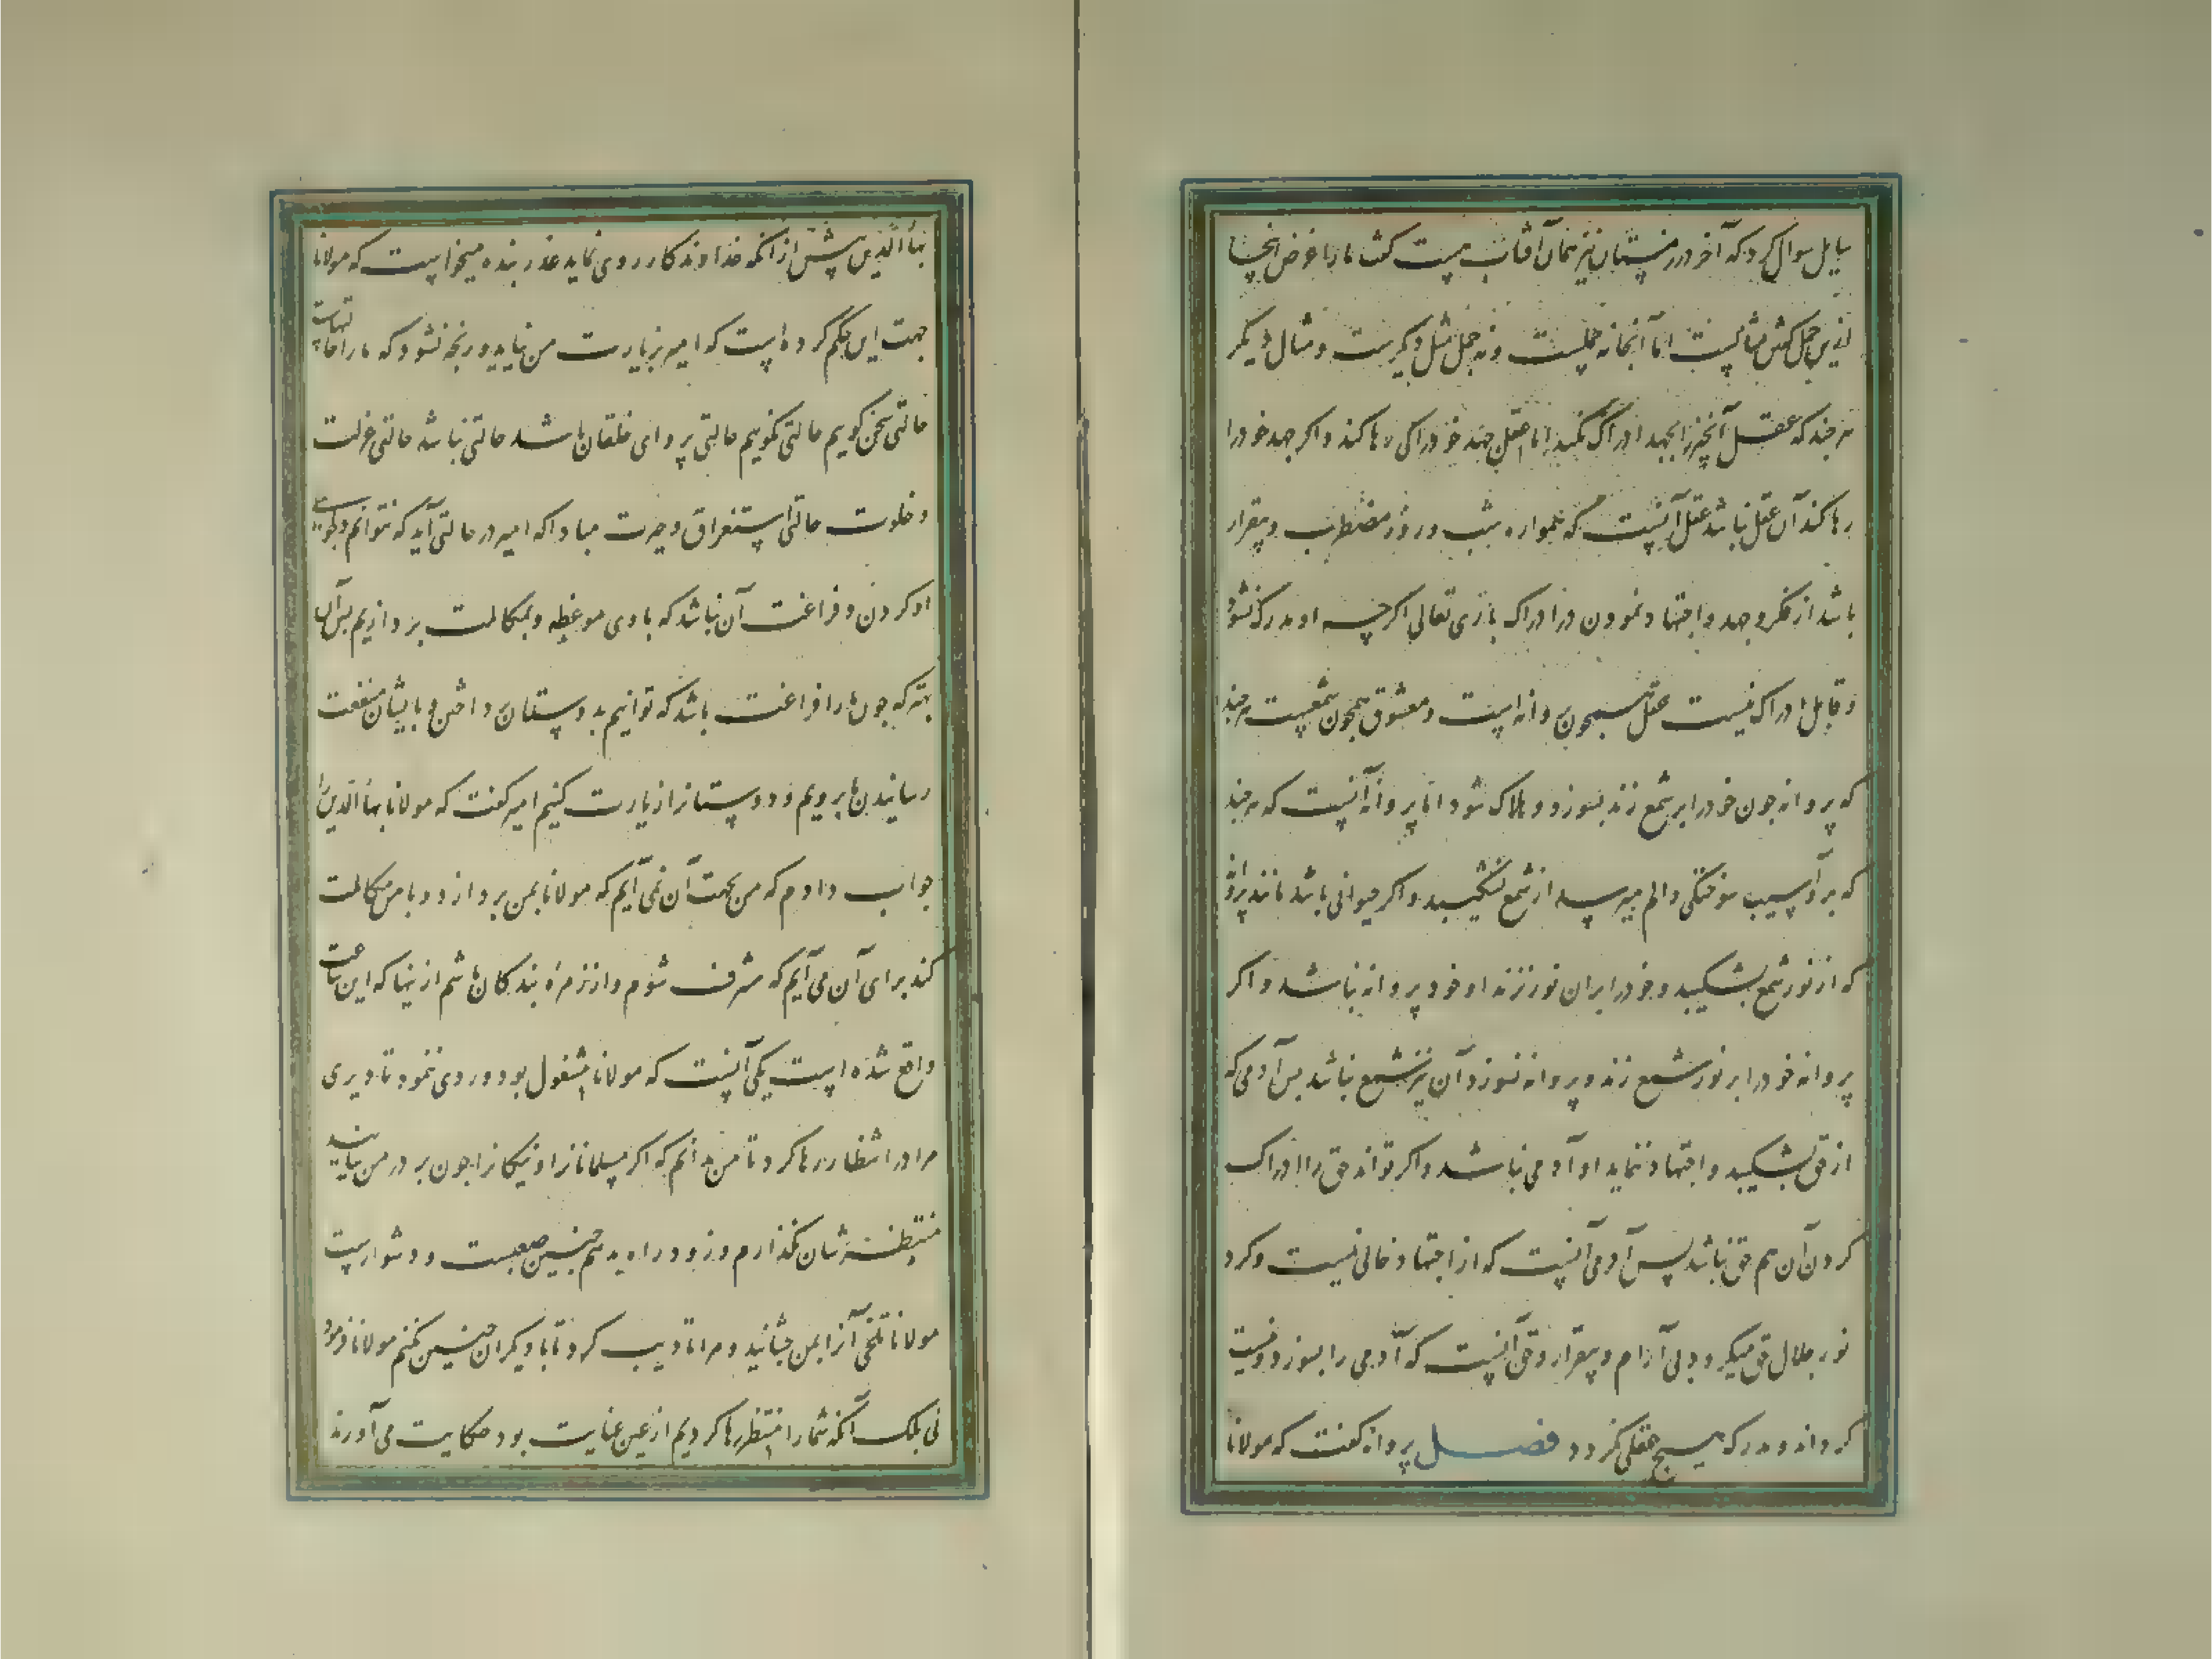 سایل سوال کرد که آخر در زمستان نیز همان آفتاب هست گفت ما را غرض اینجا
لا نا قه و لا جمل
هر چند که عقل آن چیز را بجهد ادراک نکند اما عقل جهد خود را کی رها کند و اگر جهد خود را
رها کند آن عقل نباشد عقل آنست که همواره شب و روز مضطرب و بیقرار
باشد از فکر و جهد و اجتهاد نمودن در ادراک باری تعالی اگرچه او مدرک نشود
و قابل ادراک نیست عقل همچون پروانه است و معشوق همچون شمعست هر چند
که پروانه چون خود را بر شمع زند بسوزد و هلاک شود اما پروانه آنست که هر چند
که برو آسیب سوختگی و الم میرسد از شمع نشکیبد و اگر حیوانی باشد مانند پروانه
که از نور شمع بشکیبد و خود را بر آن نور نزند او خود پروانه نباشد و اگر
پروانه خود را بر نور شمع زند و پروانه نسوزد آن نیز شمع نباشد پس آدمی که
از حق بشکیبد و اجتهاد ننماید او آدمی نباشد و اگر تواند حق را ادراک
کردن آن هم حق نباشد پس آدمی آنست که از اجتهاد خالی نیست و گرد
نور جلال حق میگردد بی آرام و بیقرار و حق آنست که آدمی را بسوزد و نیست
گرداند و مدرک هیچ عقلی نگردد فصل پروانه گفت که مولانا
بهاء الدین پیش از آنکه خداوندکار روی نماید عذر بنده میخواست که مولانا
جهت این حکم کرده است که امیر بزیارت من نیاید و رنجه نشود که ما را حالتهاست
حالتی سخن گویم حالتی نگویم حالتی پروای خلقان باشد حالتی نباشد حالتی عزلت
و خلوت حالتی استغراق و حیرت مبادا که امیر در حالتی آید که نتوانم دلجویی
او کردن و فراغت آن نباشد که با وی موعظه و بمکالمت پردازیم پس آن
بهتر که چون ما را فراغت باشد که توانیم بدوستان پرداختن و بایشان منفعت
رسانیدن ما برویم و دوستانرا زیارت کنیم امیر گفت که مولانا بهاء الدین را
جواب دادم که من بجهت آن نمی آیم که مولانا بمن پردازد و با من مکالمت
کند برای آن می آیم که مشرف شوم و از زمره بندگان باشم از ینها که این ساعت
واقع شده است یکی آنست که مولانا مشغول بود و روی ننمود تا دیری
مرا در انتظار رها کرد تا من بدانم که اگر مسلمانانرا و نیکانرا چون بر در من بیایند
منتظرشان بگذارم و زود راه ندهم چنین صعبست و دشوارست
مولانا تلخی آنرا بمن چشانید و مرا تادیب کرد تا با دیگران چنین نکنم مولانا فرمود
نی بلک آنکه شما را منتظر رها کردیم از عین عنایت بود حکایت می آورند